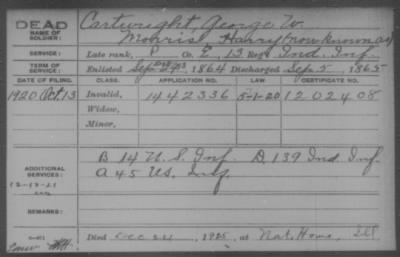 DEAD
NAME OF SOLDIER:
Cartwright, George W.
Morris Harry (now known as)
SERVICE:
Late rank, P Co. E, 13 Reg't Ind. Inf.
TERM OF SERVICE:
Enlisted Sep 1864 Discharged Sep. 5, 1865
DATE OF FILING. CLASS. APPLICATION NO. LAW. CERTIFICATE NO.
1920 Oct. 13 Invalid, 1442336 5-1-20 1202408
Widow,
Minor,
ADDITIONAL SERVICES:
B 14 U.S. Inf. D. 139 Ind. Inf.
A 45 US. Inf.
REMARKS:
Died Dec 24, 1925, at Nat. Home, Ill.